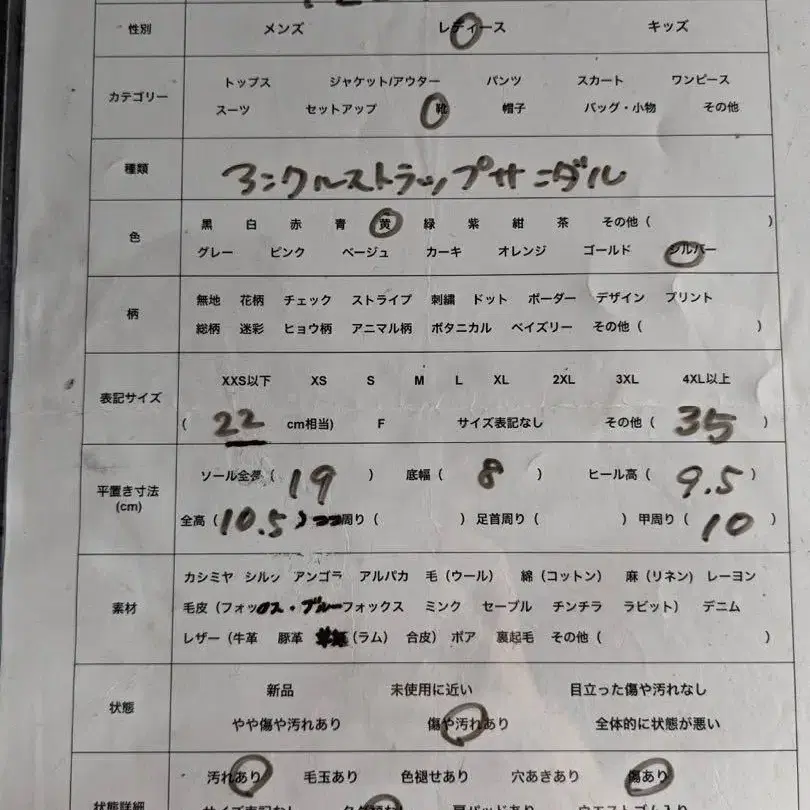 性別 メンズ レディース キッズ
トップス ジャケット/アウター パンツ スカート ワンピース
カテゴリー
スーツ セットアップ 靴 帽子 バッグ・小物 その他
種類 アンクルストラップサンダル
黒 白 赤 青 黄 緑 紫 紺 茶 その他 ( )
色
グレー ピンク ベージュ カーキ オレンジ ゴールド シルバー
無地 花柄 チェック ストライプ 刺繍 ドット ボーダー デザイン プリント
柄
総柄 迷彩 ヒョウ柄 アニマル柄 ボタニカル ペイズリー その他 ( )
XXS以下 XS S M L XL 2XL 3XL 4XL以上
表記サイズ
( 22 cm相当) F サイズ表記なし その他 ( 35 )
ソール全長 ( 19 ) 底幅 ( 8 ) ヒール高 ( 9.5 )
平置き寸法
(cm)
全高 ( 10.5 ) 周り ( ) 足首周り ( ) 甲周り ( 10 )
カシミヤ シルク アンゴラ アルパカ 毛 (ウール) 綿 (コットン) 麻 (リネン) レーヨン
素材
毛皮 (フォックス・ブルーフォックス ミンク セーブル チンチラ ラビット) デニム
レザー (牛革 豚革 (ラム) 合皮) ボア 裏起毛 その他 ( )
新品 未使用に近い 目立った傷や汚れなし
状態
やや傷や汚れあり 傷や汚れあり 全体的に状態が悪い
汚れあり 毛玉あり 色褪せあり 穴あきあり 傷あり
状態詳細
サイズ表記なし タグ切れなし 肩パッドあり ウエストゴム入り